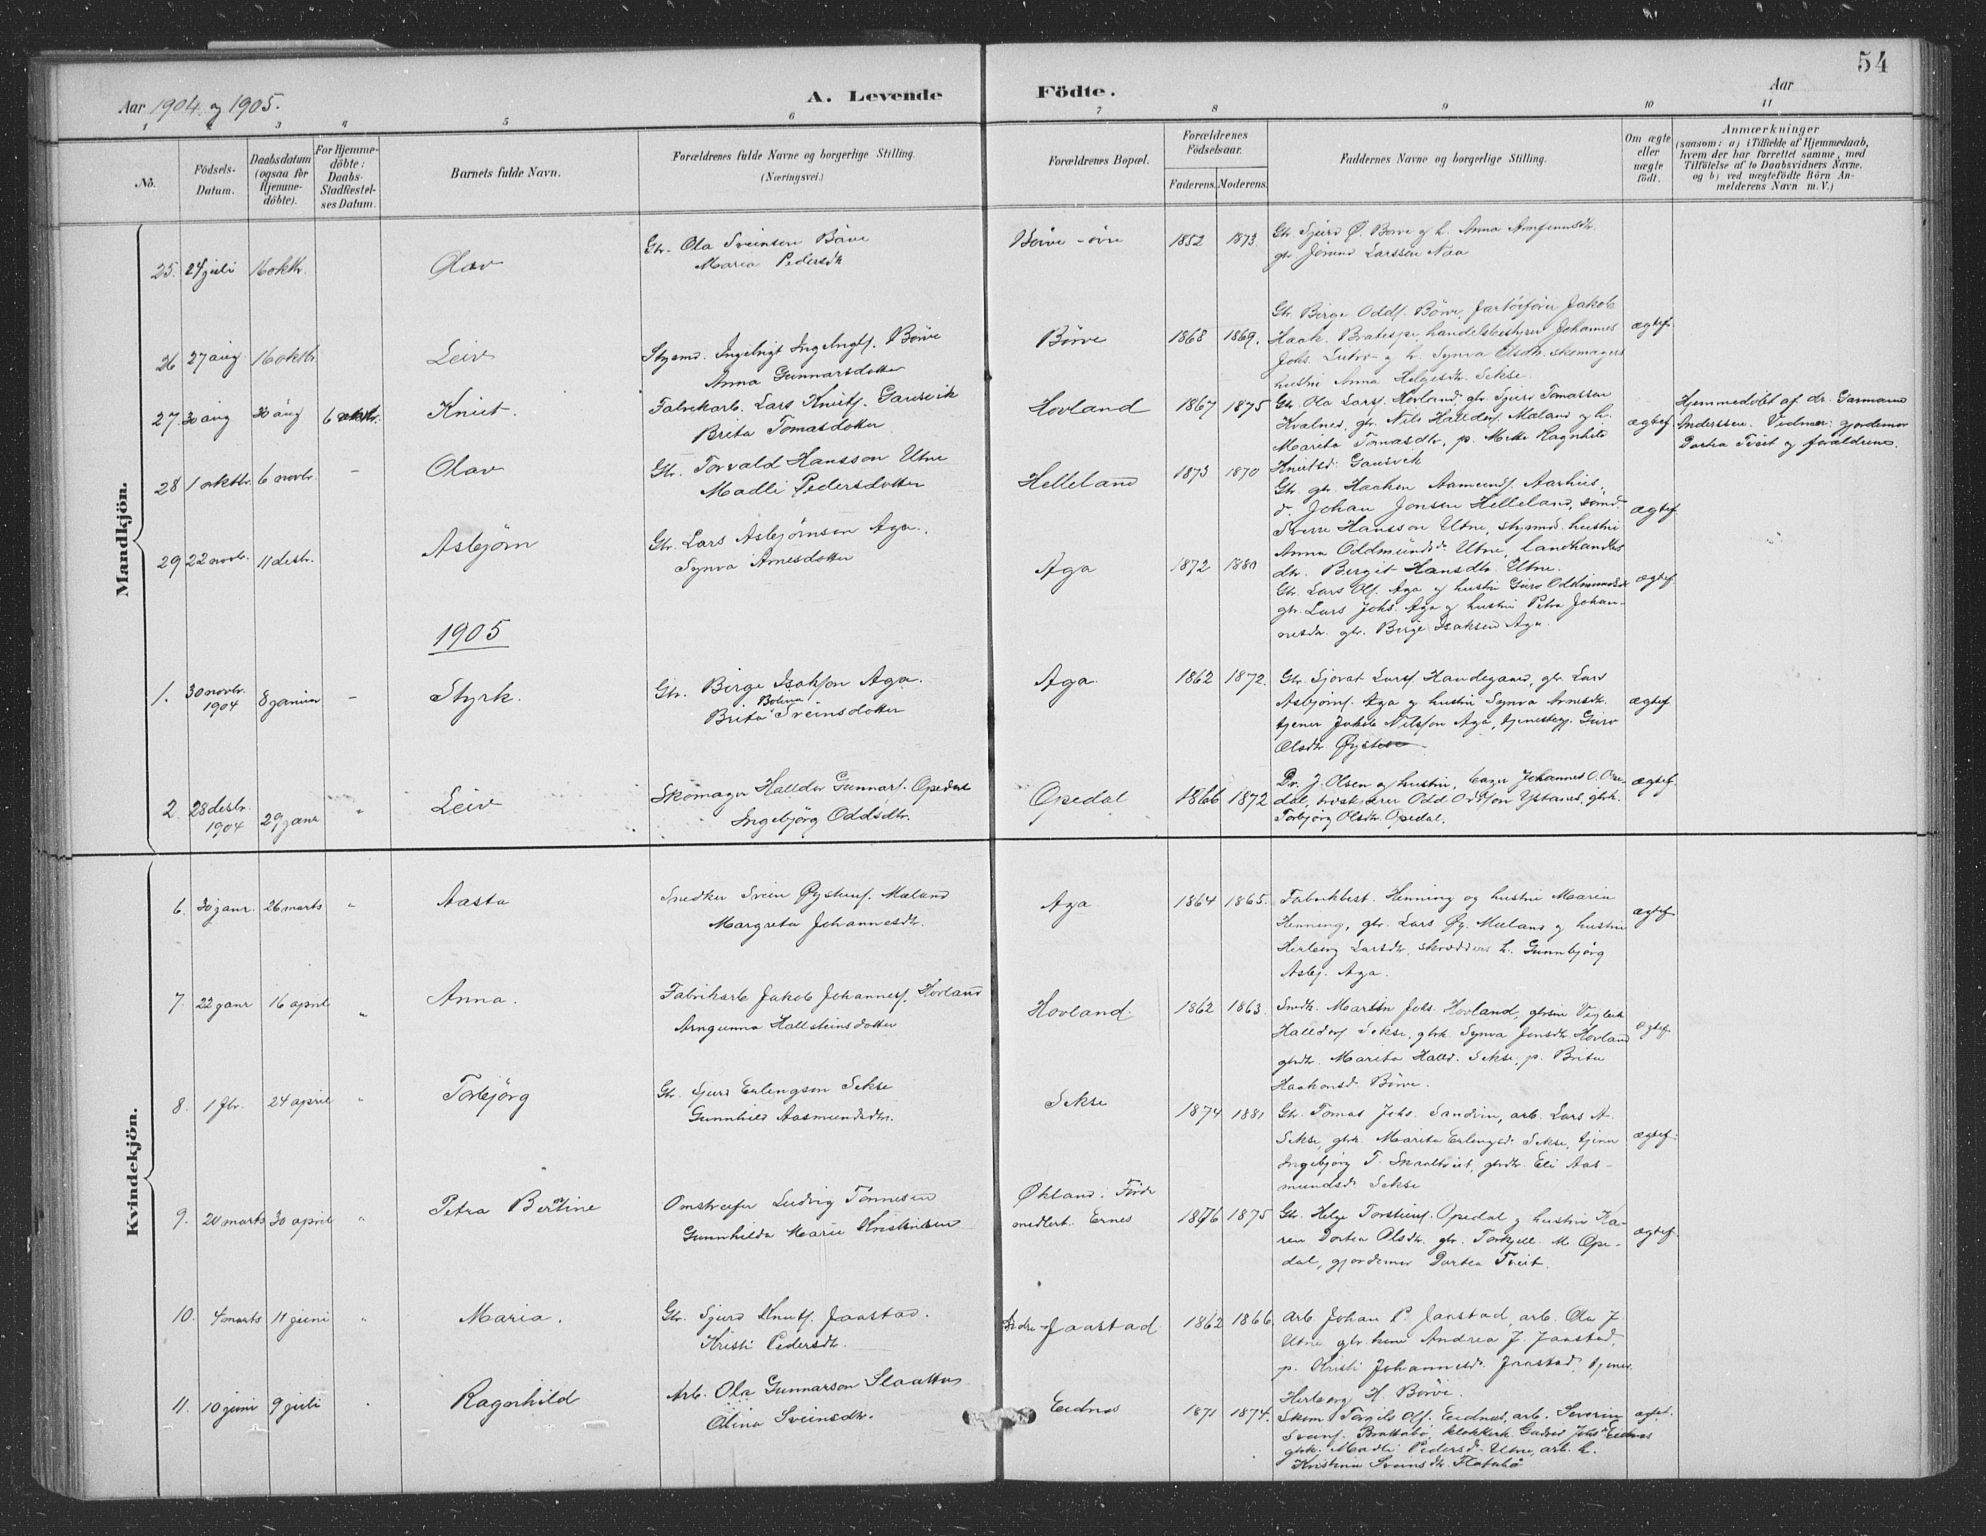 54
Aar 1904 og 1905. A. Levende Födte. Aar
1 2 3 4 5 6 7 8 9 10 11
No.
Födsels-Datum.
Daabsdatum (ogsaa for Hjemmedöbte).
For Hjemmedöbte: Daabs-Stadfæstelses Datum.
Barnets fulde Navn.
Forældrenes fulde Navne og borgerlige Stilling.
(Næringsvei.)
Forældrenes Bopæl.
Forældrenes Födselsaar.
Faderens. Moderens.
Faddernes Navne og borgerlige Stilling.
Om ægte eller uægte födt.
Anmærkninger
(saasom: a) i Tilfælde af Hjemmedaab, hvem der har forrettet samme, med Tilföielse af to Daabsvidners Navne, og b) ved uægtefödte Börn Anmelderens Navn m. V.)
Mandkjön.
25. 24 juli 16 oktbr. Olav
Gbr. Ola Sveinsen Böve
Maria Pedersdtr
Börve - övre 1852 1873.
Gbr. Sjurd Ö. Börve og h. Anna Arnfinnsdtr.
gbr Jörund Larssen Naa
26 27 aug 16 oktbr. Leiv
Styrmd. Ingebrigt Ingebrigts. Börve
Anna Gunnarsdotter
Börve 1868 1869.
Gbr. Birge Odds. Börve, fartöiförer Jakob
Haak. handelsbestyrer Johannes
Johs. og h. Synva Olsdtr. skomagers
hustru Anna Helgesdtr. Sekse
ægtef.
27. 30 aug 30 aug 6 oktbr. Knut.
Fabrikarb. Lars Knuts. Gausvik
Brita Tomasdotter
Hovland 1867 1875
Gbr. Ola Larss. Hovland, gbr Sjurd Tomassen
Kvalnes, gbr. Nils Halldors. Mæland og h.
Marita Tomasdtr, p. Ragnhild
Knutsd. Gausvik
ægtef.
Hjemmedöbt af dr. Garmann
Anderssen. Vidner: gjordemor
Dortea Tveit og forældrene.
28 1 oktbr. 6 novbr. - Olav
Gbr. Torvald Hansson Utne
Madli Pedersdotter
Helleland 1873 1870
Gbr. gbr. Haaken Aamunds. Aarhus,
d. Johan Jonsen Helleland, sömd.
Sverre Hansson Utne, styrmd. hustru
Anna Oddmundsd. Utne, landhandler
dtr. Birgit Hansdtr. Utne.
ægtef.
29 22 novbr. 11 desbr. Asbjörn
Gbr. Lars Asbjörnsen Aga.
Synva Arnesdotter
Aga 1872 1880
Gbr. Lars Ols. Aga og hustru Guro Oddmundsdtr
gbr. Lars Johs. Aga og hustru Petra Johan-
nesdtr. gbr. Birge Isaksen Aga.
ægtef
1905
1. 30 novbr. 1904 8 januar - Styrk.
Gbr. Birge Isakson Aga.
Brita Bolina Sveinsdotter
Aga. 1862 1872.
Gbr. Sjovat Larss. Handegaard, gbr. Lars
Asbjörns. Aga og hustru Synva Arnesdtr.
tjener Jakob Nilsson Aga, tjenestepg. Guro
Olsdtr. Øystese
ægtef
2. 28 desbr. 1904 29 janr " Leiv
Skomager Halldor Gunnars. Opedal
Ingebjörg Oddsdtr.
Opedal 1866 1872
Dr. J. Olsen og hustru, Johannes O. Ope-
dal, Odd Oddson Ystanes, gbrk.
Torbjörg Olsdtr. Opedal.
ægtef
Kvindekjön.
6. 30 janr. 26 marts " Aasta
Snedker Svein Øystens. Mæland
Margreta Johannesdtr.
Aga 1864 1865.
Fabrikbest. Henning og hustru Maria
Henning, gbr. Lars Øy. Mæland og hustru
Herborg Larsdtr. skrædders h. Gunnbjörg
Asbj. Aga.
ægtef
7. 22 janr 16 april " Anna.
Fabrikarb Jakob Johanness. Hovland
Arngunna Hallsteinsdotter
Hovland. 1862 1863.
Snedk. Martin Johs. Hovland, gbrsön Vigleik
Halldors. Sekse, gbrk Synva Jonsdtr Hovland
gbrdtr. Marita Halld. Sekse, p. Brita
Haakonsd. Börve.
ægtef.
8. 1 fbr. 24 april " Torbjörg
Gbr. Sjurd Erlingson Sekse
Gunnhild Aasmundsdtr.
Sekse 1874 1881
Gbr. Tomas Johs. Sandvin, arb. Lars A.
Sekse, gbrk. Marita Erlingsd. Sekse, tjener
Ingebjörg T. gbrdtr. Eli Aas-
mundsdr Sekse
ægtef.
9. 20 marts 30 april " Petra Bertine
Omstreifer Ludvig Tönnesen
Gunnhilda Marie Kristensen
Økland i Förde
1876 1875
Gbr. Helge Torsteins. Opedal og hustru Ka-
ren Dortea Olsdtr. gbr. Torkjell M. Ope-
dal, gjordemor Dortea Tveit.
ægtef.
10. 4 marts 11 juni " Maria.
Gbr. Sjurd Knuts. Jaastad.
Kristi Pedersdtr.
Indre-Jaastad 1862 1866
Arb. Johan P. Jaastad, arb. Ola J.
Utne, gbr. kone Andrea J. Jaastad,
p. Kristi Johannesd. Jaastad, tjener
Herborg H. Börve.
11. 10 juni 9 juli Ragnhild
Arb. Ola Gunnarson Slaattus
Olina Sveinsdtr.
Eidnes 1871 1874.
Skom Torgils Ols. Eidnes, arb. Severin
Sveins. Brattabö, klokkerk. Gudrid Johs. Eidnes
gbrk. Madli Pedersd. Utne, arb. h.
Kristina Sveinsdtr. Flatabö
ægtef.